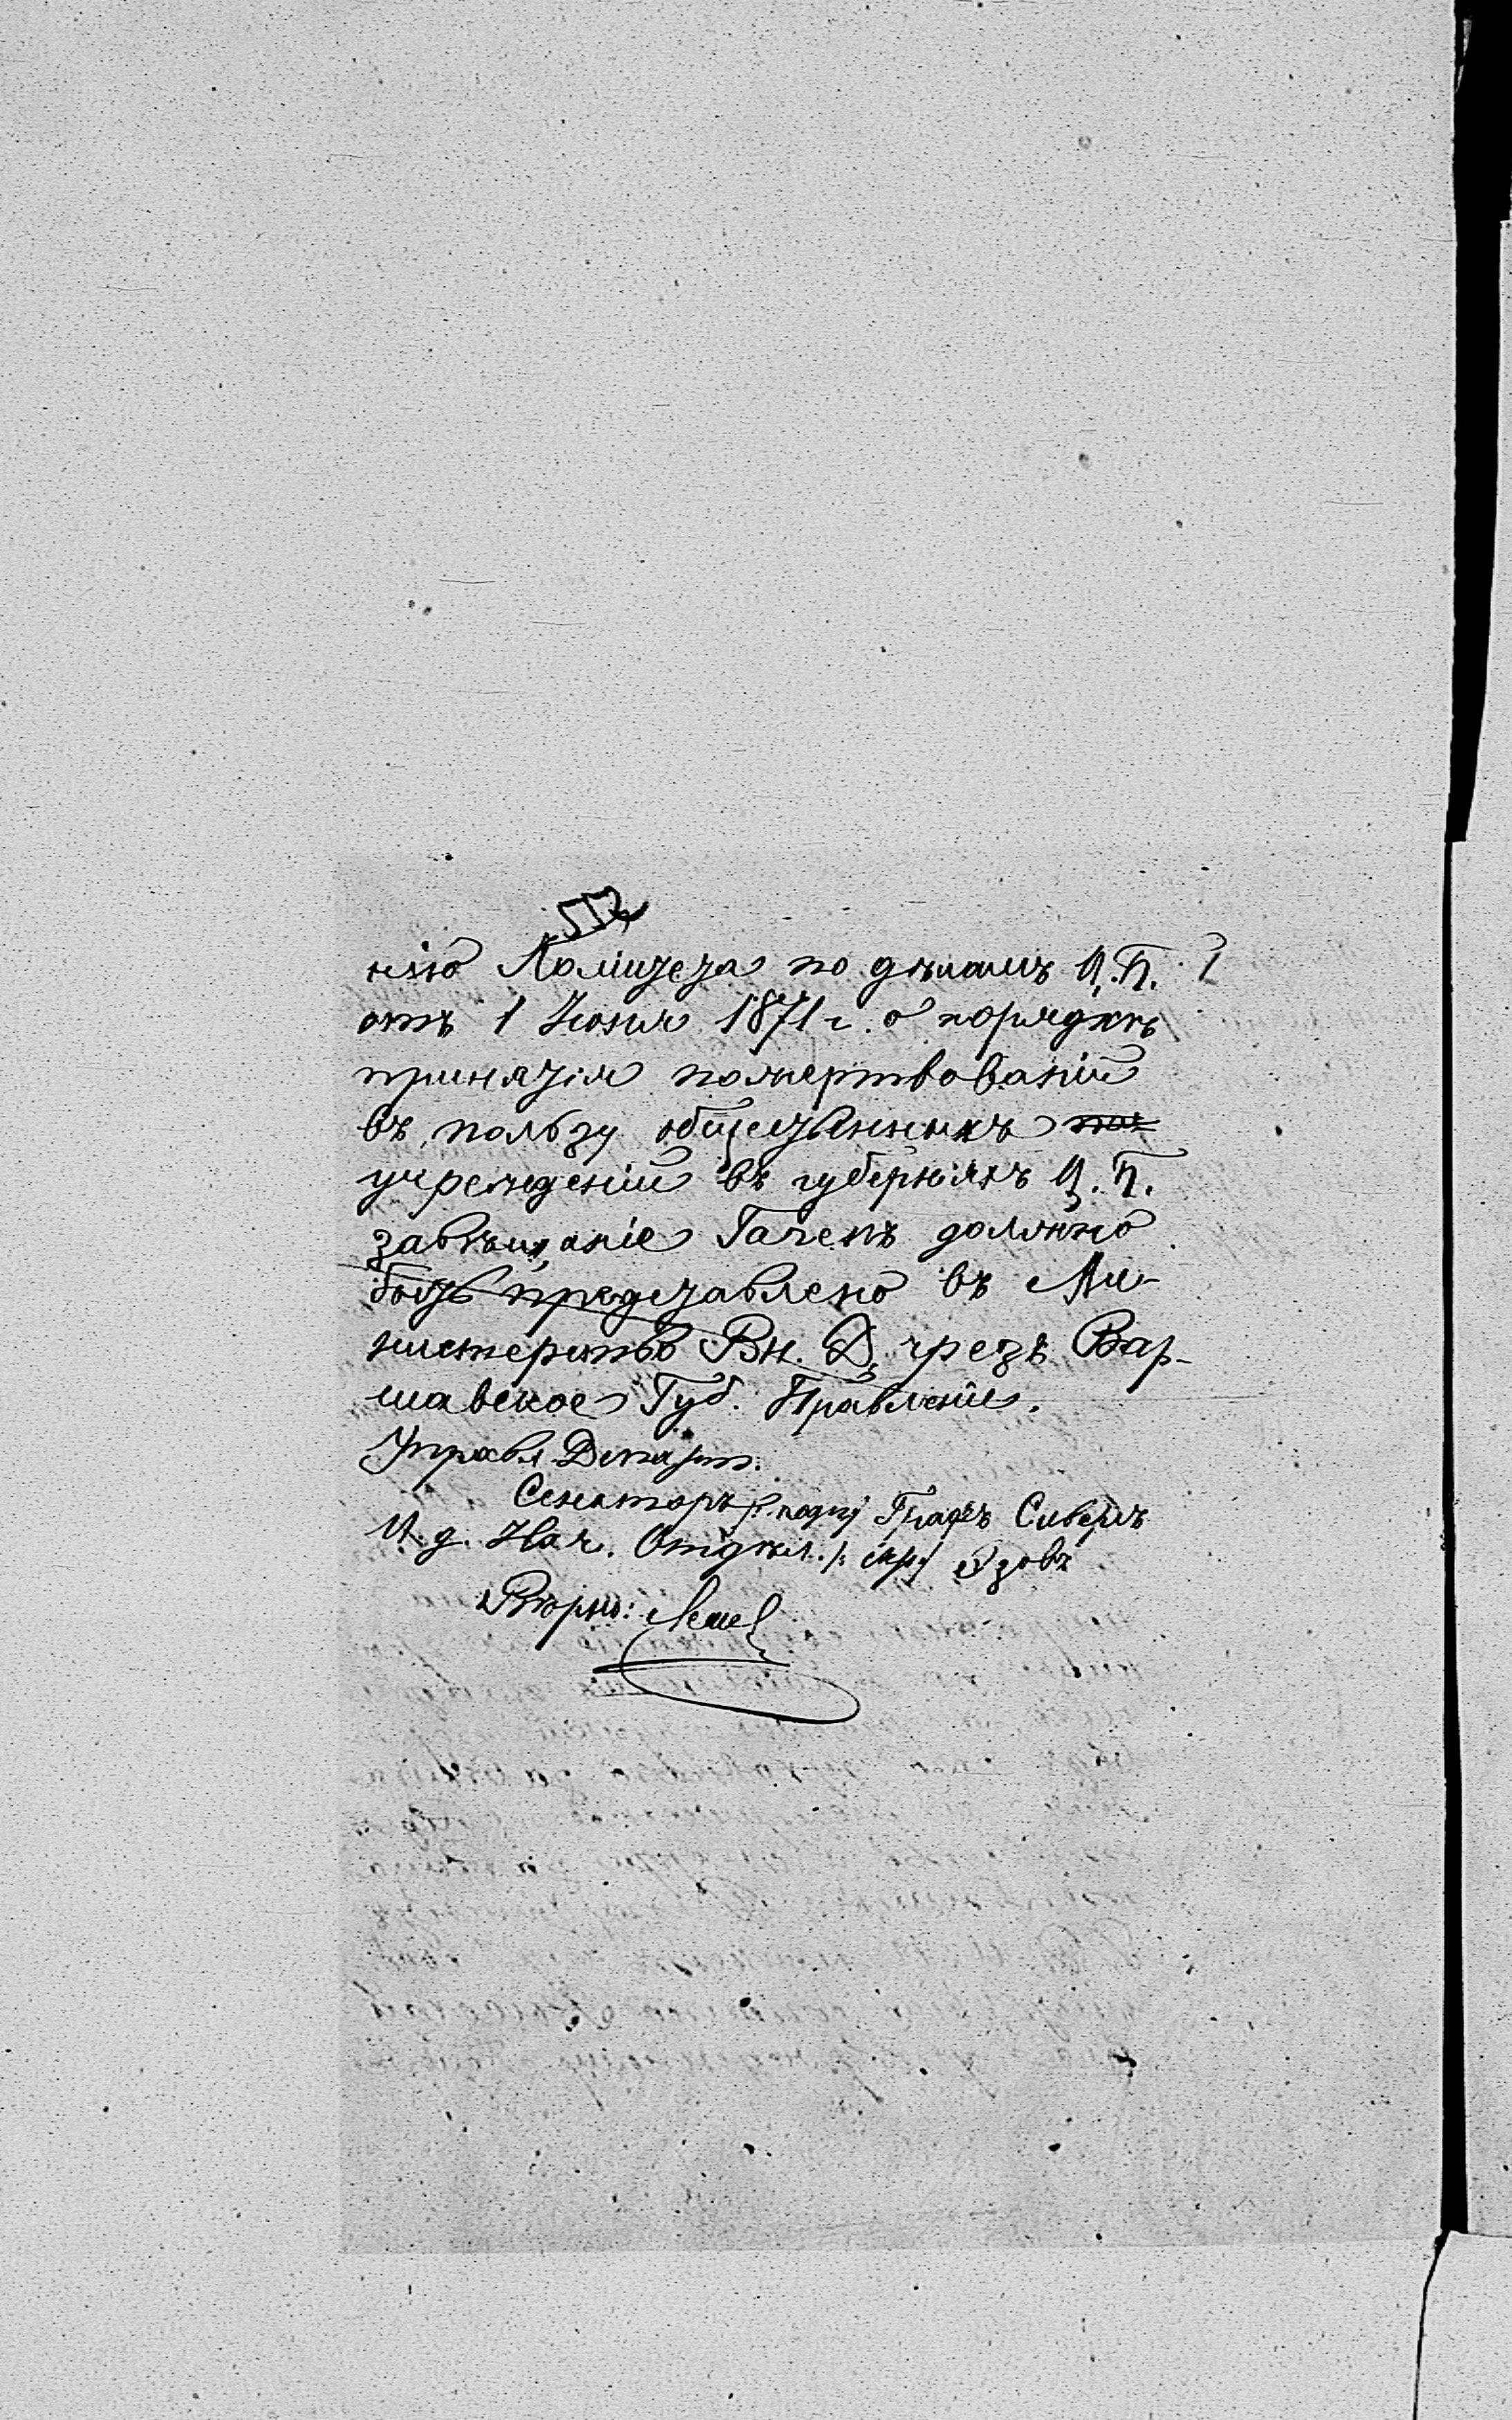 нію Комитета по дѣламъ Ц. П.
отъ 1 Іюня 1871 г. о порядкѣ
принятія пожертвованій
въ пользу общественныхъ
учрежденій въ губерніяхъ Ц. П.
завѣщаніе Гачекъ должно
быть представлено въ Ми-
нистерство Вн. Д. чрезъ Вар-
шавское Губ. Правленіе.
Управл. Департ.
Сенаторъ /: подп:/ Графъ Сиверсъ
И. д. Нач. Отдѣл. /: скр:/ Азовъ
Вѣрно: